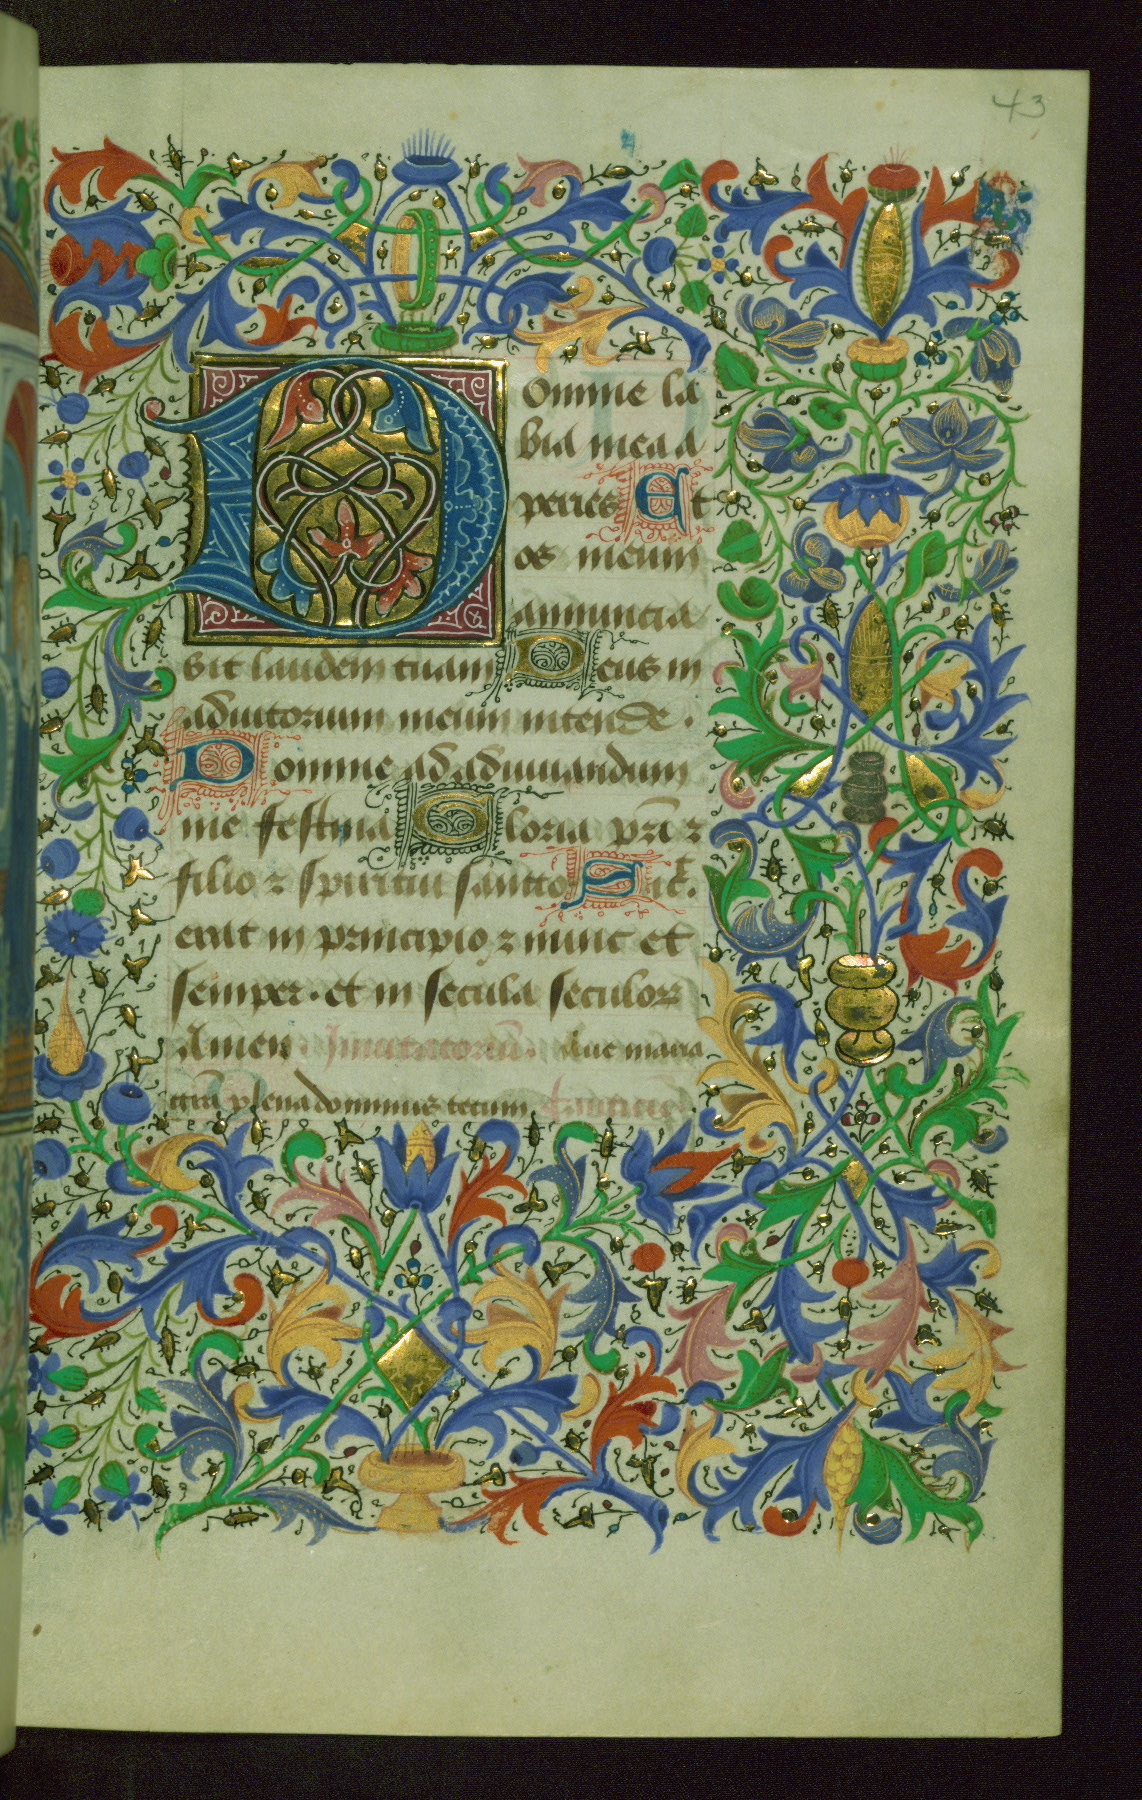 43
Domine la
bia mea a
peries Et
os meum
annuncia
bit laudem tuam Deus in
adiutorium meum intende.
Domine ad adiuuandum
me festina Gloria pr̄i ⁊
filio ⁊ spiritui sancto Sic̄.
erat in principio ⁊ nunc et
semper. et in secula seculoꝝ
Amen. Inuitatoriū. Aue maria
gr̄a plena dominus tecum.